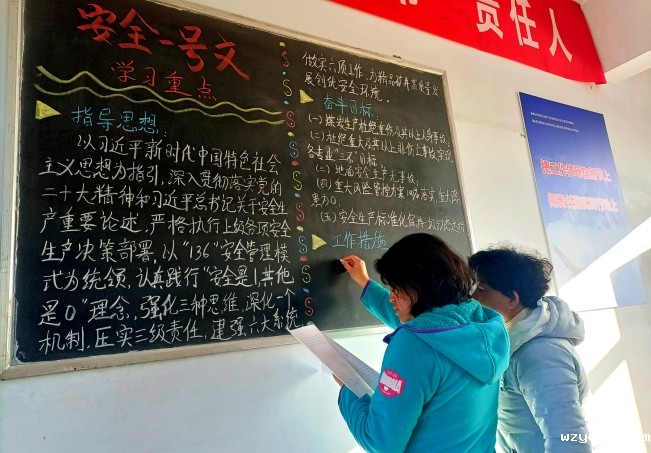 责任人
安全一号文
学习重点
指导思想:
以习近平新时代中国特色社会
主义思想为指引,深入贯彻落实党的
二十大精神和习近平总书记关于安全生
产重要论述,严格执行上级各项安全
生产决策部署,以“136”安全管理模
式为统领,认真践行“安全是1,其他
是0”理念,强化三种思维,深化一个
机制,压实三级责任,建强六大系统
做实六项工作,为精品矿井高质量发
展创优安全环境.
奋斗目标:
(一)煤炭生产杜绝重伤及其以上人身事故;
(二)杜绝重大及其以上非伤亡事故,实现
各专业“三不”目标
(三)地面安全生产无事故;
(四)重大风险管控方案100%落实,重大隐
患为0;
(五)安全生产标准化保持一级
工作措施